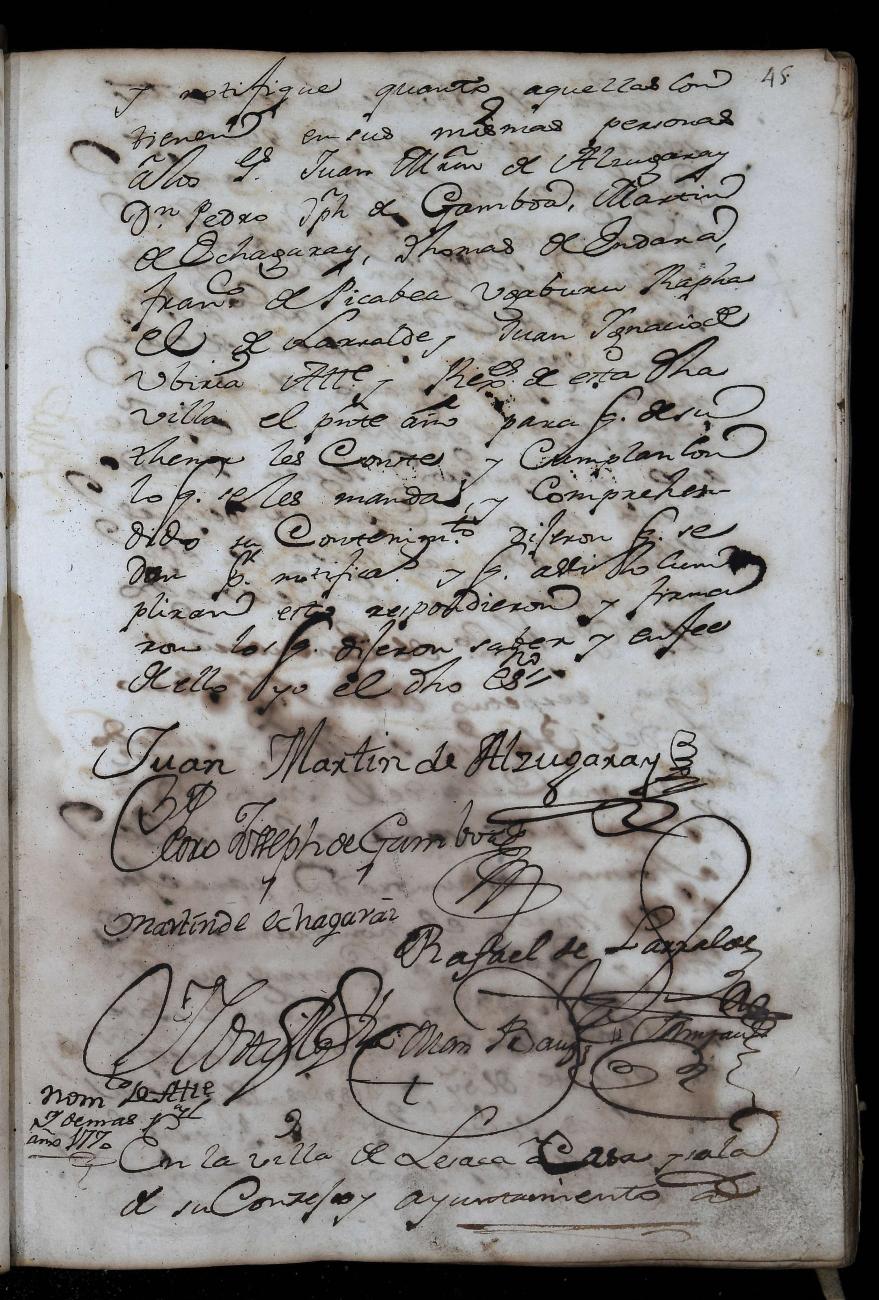 45
y notifique quanto aquellas con
tienen en sus mismas personas
a los Sres. Juan Mrn de Alzugaray
Dn Pedro Jph de Gamboa, Martin
de Echagaray, Thomas de Endara,
Franco de Picabea Vgaburu Rapha
el de Larralde, y Juan Ygnacio de
Vbiria Alte y Rexres de esta dha
villa el pnte año para q. de su
thenor les Conste y Cumplan con
lo q. se les manda, y Comprehen
dido su Contenimto dijeron q. se
dan pr notificados y q. assi lo Cum
pliran esto respondieron y firma
ron los q. dijeron saber y en fee
de ello yo el dho essno
Juan Martin de Alzugaray
Dn Pedro Joseph de Gamboa
Martin de echagarai
Rafael de Larralde
Juan Bauta
Nomto de Alte
y demas pa el
año 1770
En la villa de Lesaca Casa y sala
de su Consejo y ayuntamiento a